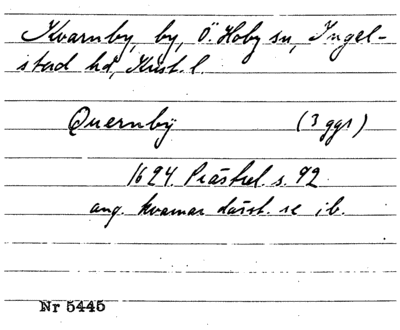 Kvarnby, by, Ö. Hoby sn, Ingel-
stad hd, Krist. l.
Quernbÿ (3 ggr)
1624 Präsrel. s. 92
ang. kvarnar därst. se ib.
Nr 5445